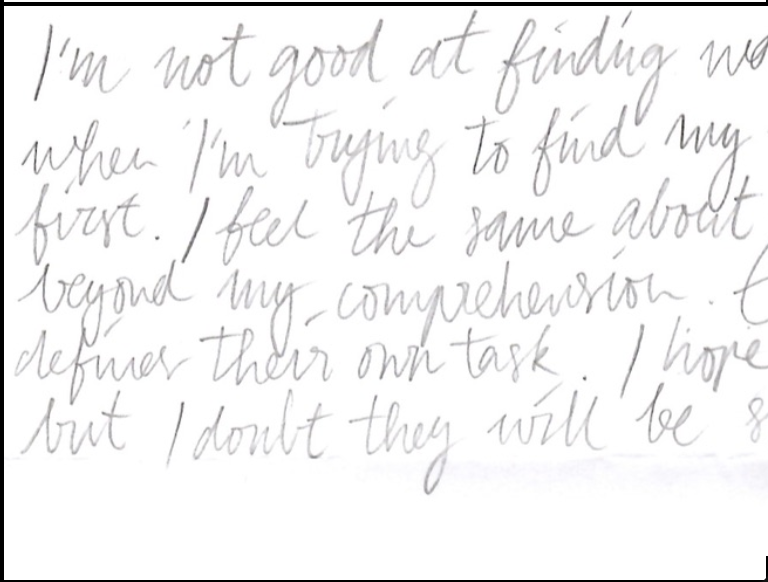 I'm not good at finding
when I'm trying to find my
first. I feel the same about
beyond my comprehension.
defines their own task. I hope
but I doubt they will be